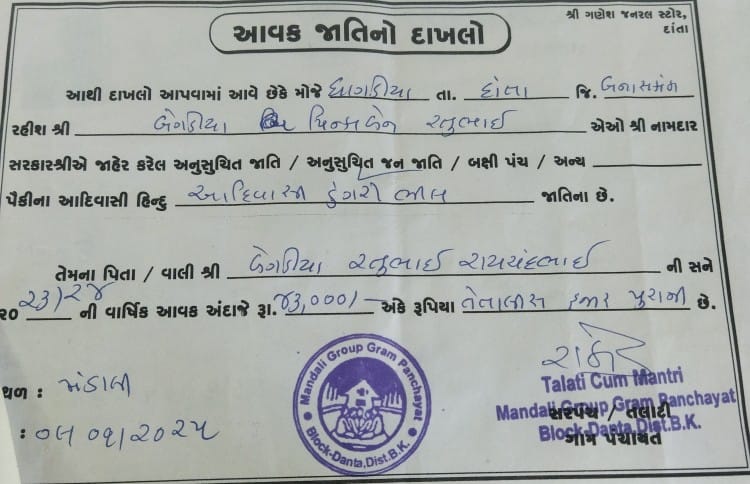 શ્રી ગણેશ જનરલ સ્ટોર,
દાંતા
આવક જાતિનો દાખલો
આથી દાખલો આપવામાં આવે છેકે મોજે ધાગડીયા તા. દાંતા જિ. બનાસકાંઠા
રહીશ શ્રી બેગડીયા રતુભાઈ એઓ શ્રી નામદાર
સરકારશ્રીએ જાહેર કરેલ અનુસુચિત જાતિ / અનુસુચિત જન જાતિ / બક્ષી પંચ / અન્ય
પૈકીના આદિવાસી હિન્દુ આદિવાસી ડુંગરી ભીલ જાતિના છે.
તેમના પિતા / વાલી શ્રી બેગડીયા રતુભાઈ રાયચંદભાઈ ની સને
૨૦ ૨૩/૨૪ ની વાર્ષિક આવક અંદાજે રૂા. ૪૩,૦૦૦/- અંકે રૂપિયા તેતાલીસ હજાર પુરાની છે.
થળ : મંડાલી
Mandali Group Gram Panchayat
Block-Danta, Dist.B.K.
Talati Cum Mantri
Mandali Group Gram Panchayat
સરપંચ / તલાટી
Block-Danta,Dist.B.K.
ગ્રામ પંચાયત